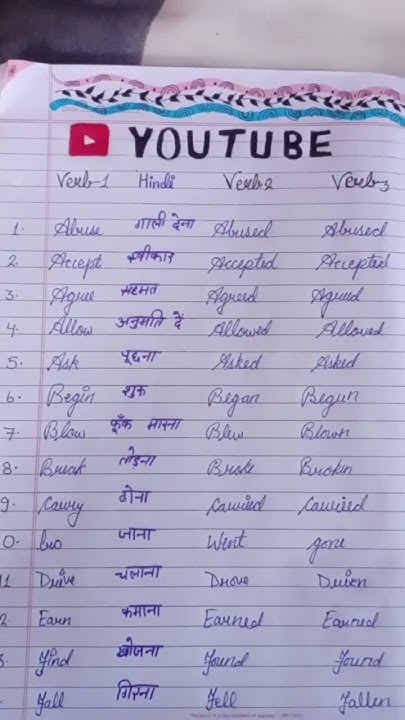 YOUTUBE
Verb-1 Hindi Verb2 Verb-3
1. Abuse गाली देना Abused Abused
2. Accept स्वीकार Accepted Accepted
3. Agree सहमत Agreed Agreed
4. Allow अनुमति दें Allowed Allowed
5. Ask पूछना Asked Asked
6. Begin शुरू Began Begun
7. Blow फूँक मारना Blew Blown
8. Break तोड़ना Broke Broken
9. Carry ढोना Carried Carried
0. Go जाना Went gone
11 Drive चलाना Drove Driven
2. Earn कमाना Earned Earned
3. Find खोजना Found Found
Fall गिरना Fell Fallen